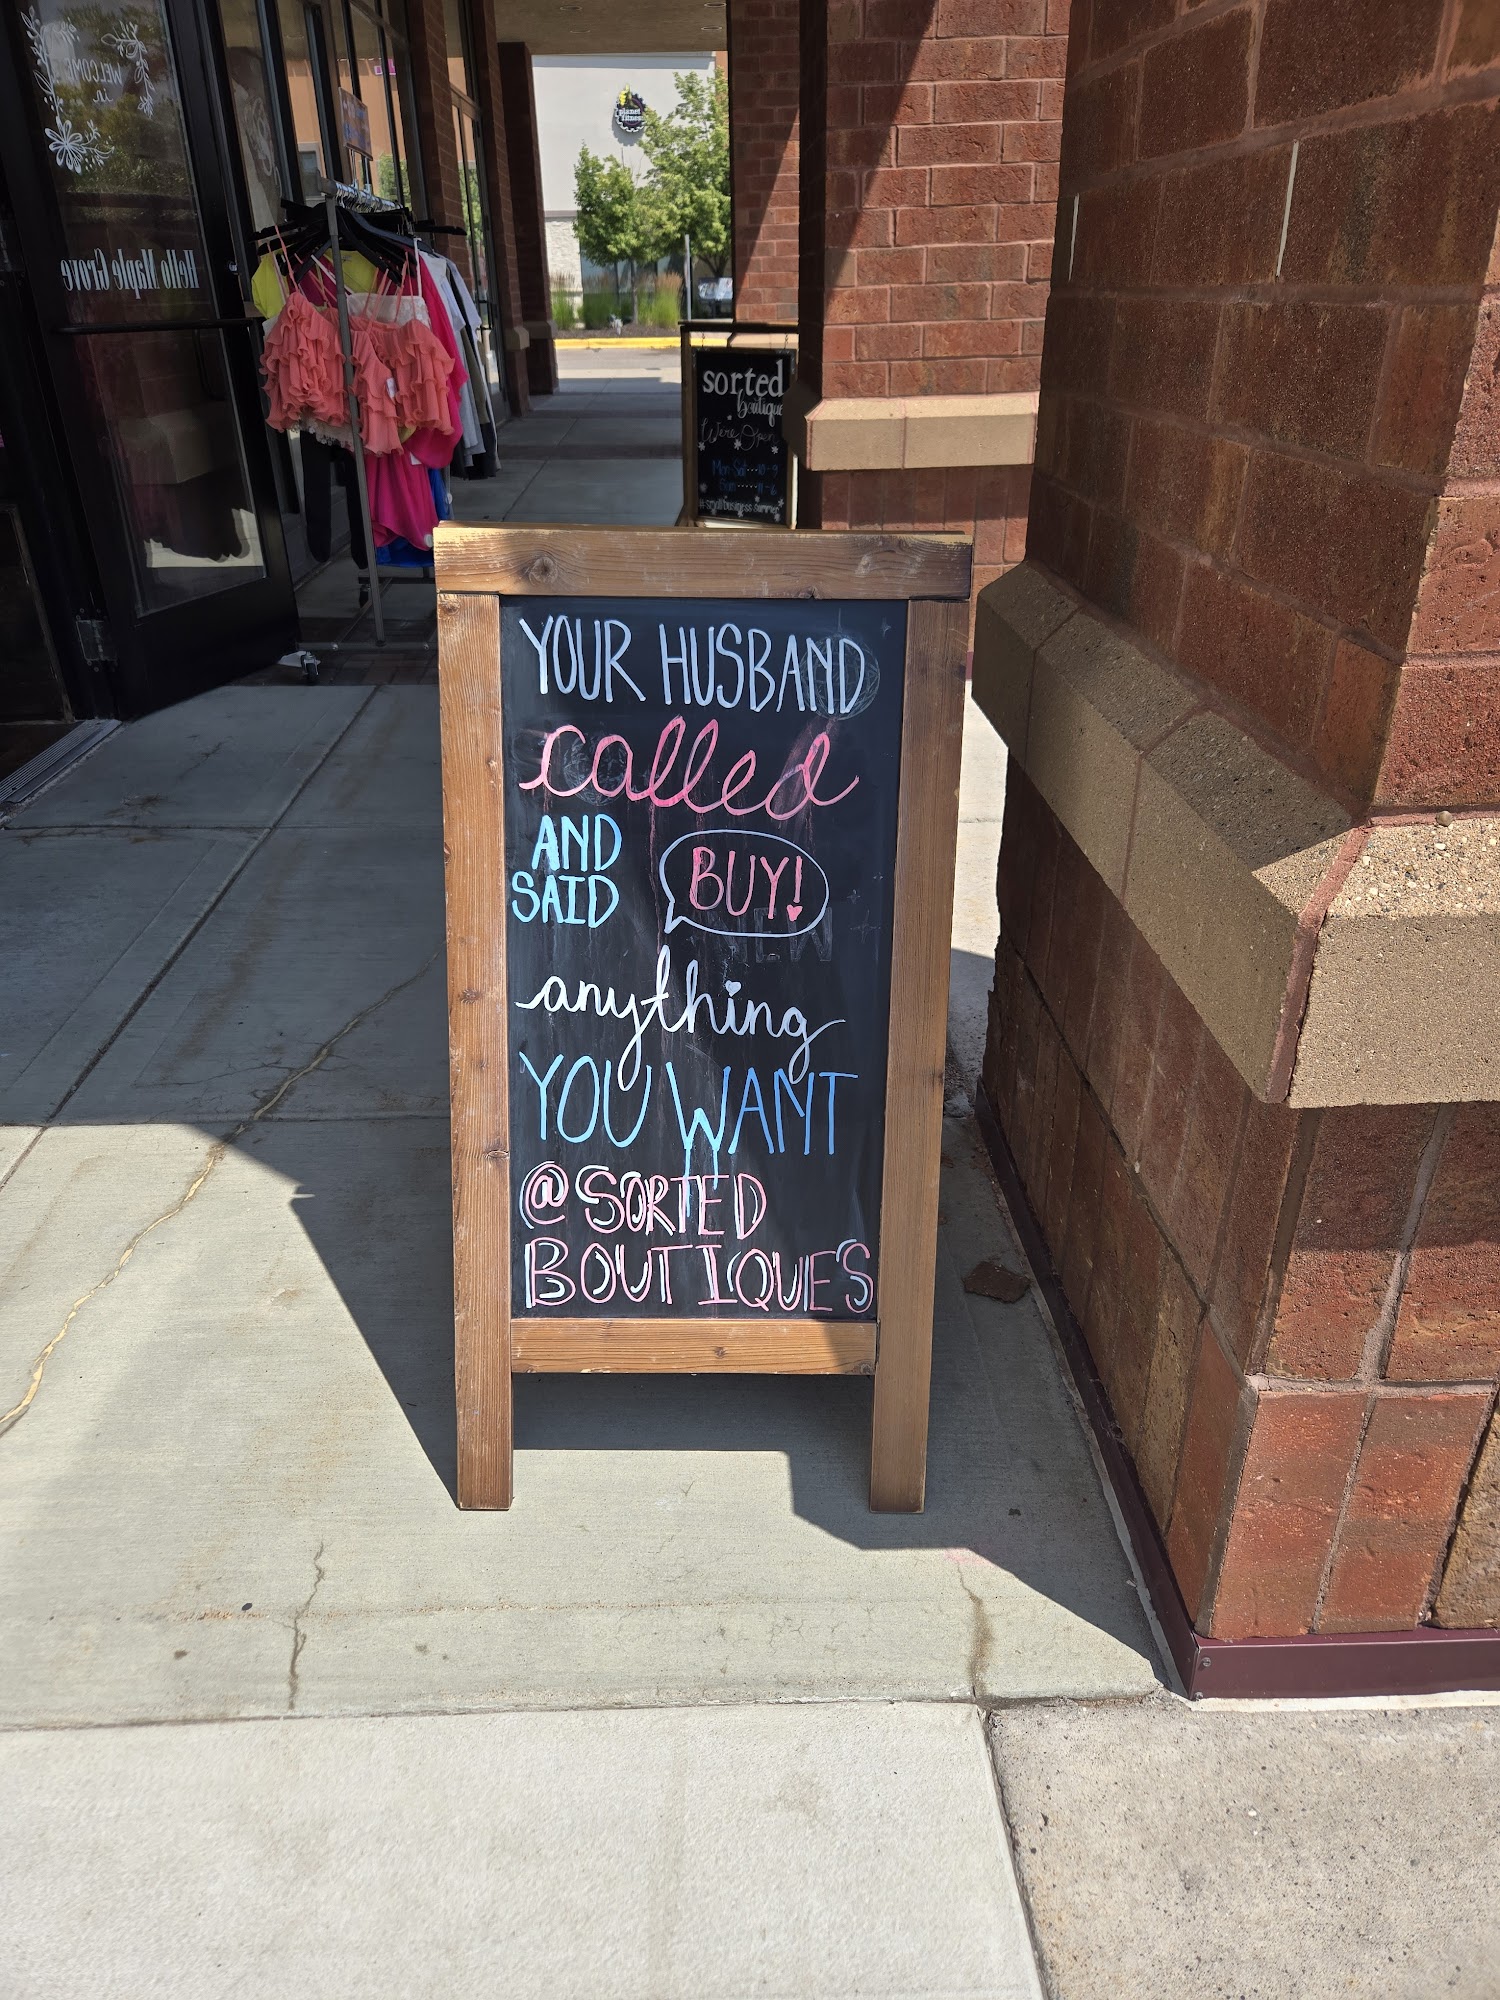 WELCOME
in
Hello Maple Grove
planet
fitness
sorted
boutique
We're Open
Mon-Sat...10-9
Sun.....11-6
#smallbusinesssummer
YOUR HUSBAND
called
AND
SAID
BUY!
NEW
anything
YOU WANT
@SORTED
BOUTIQUE'S